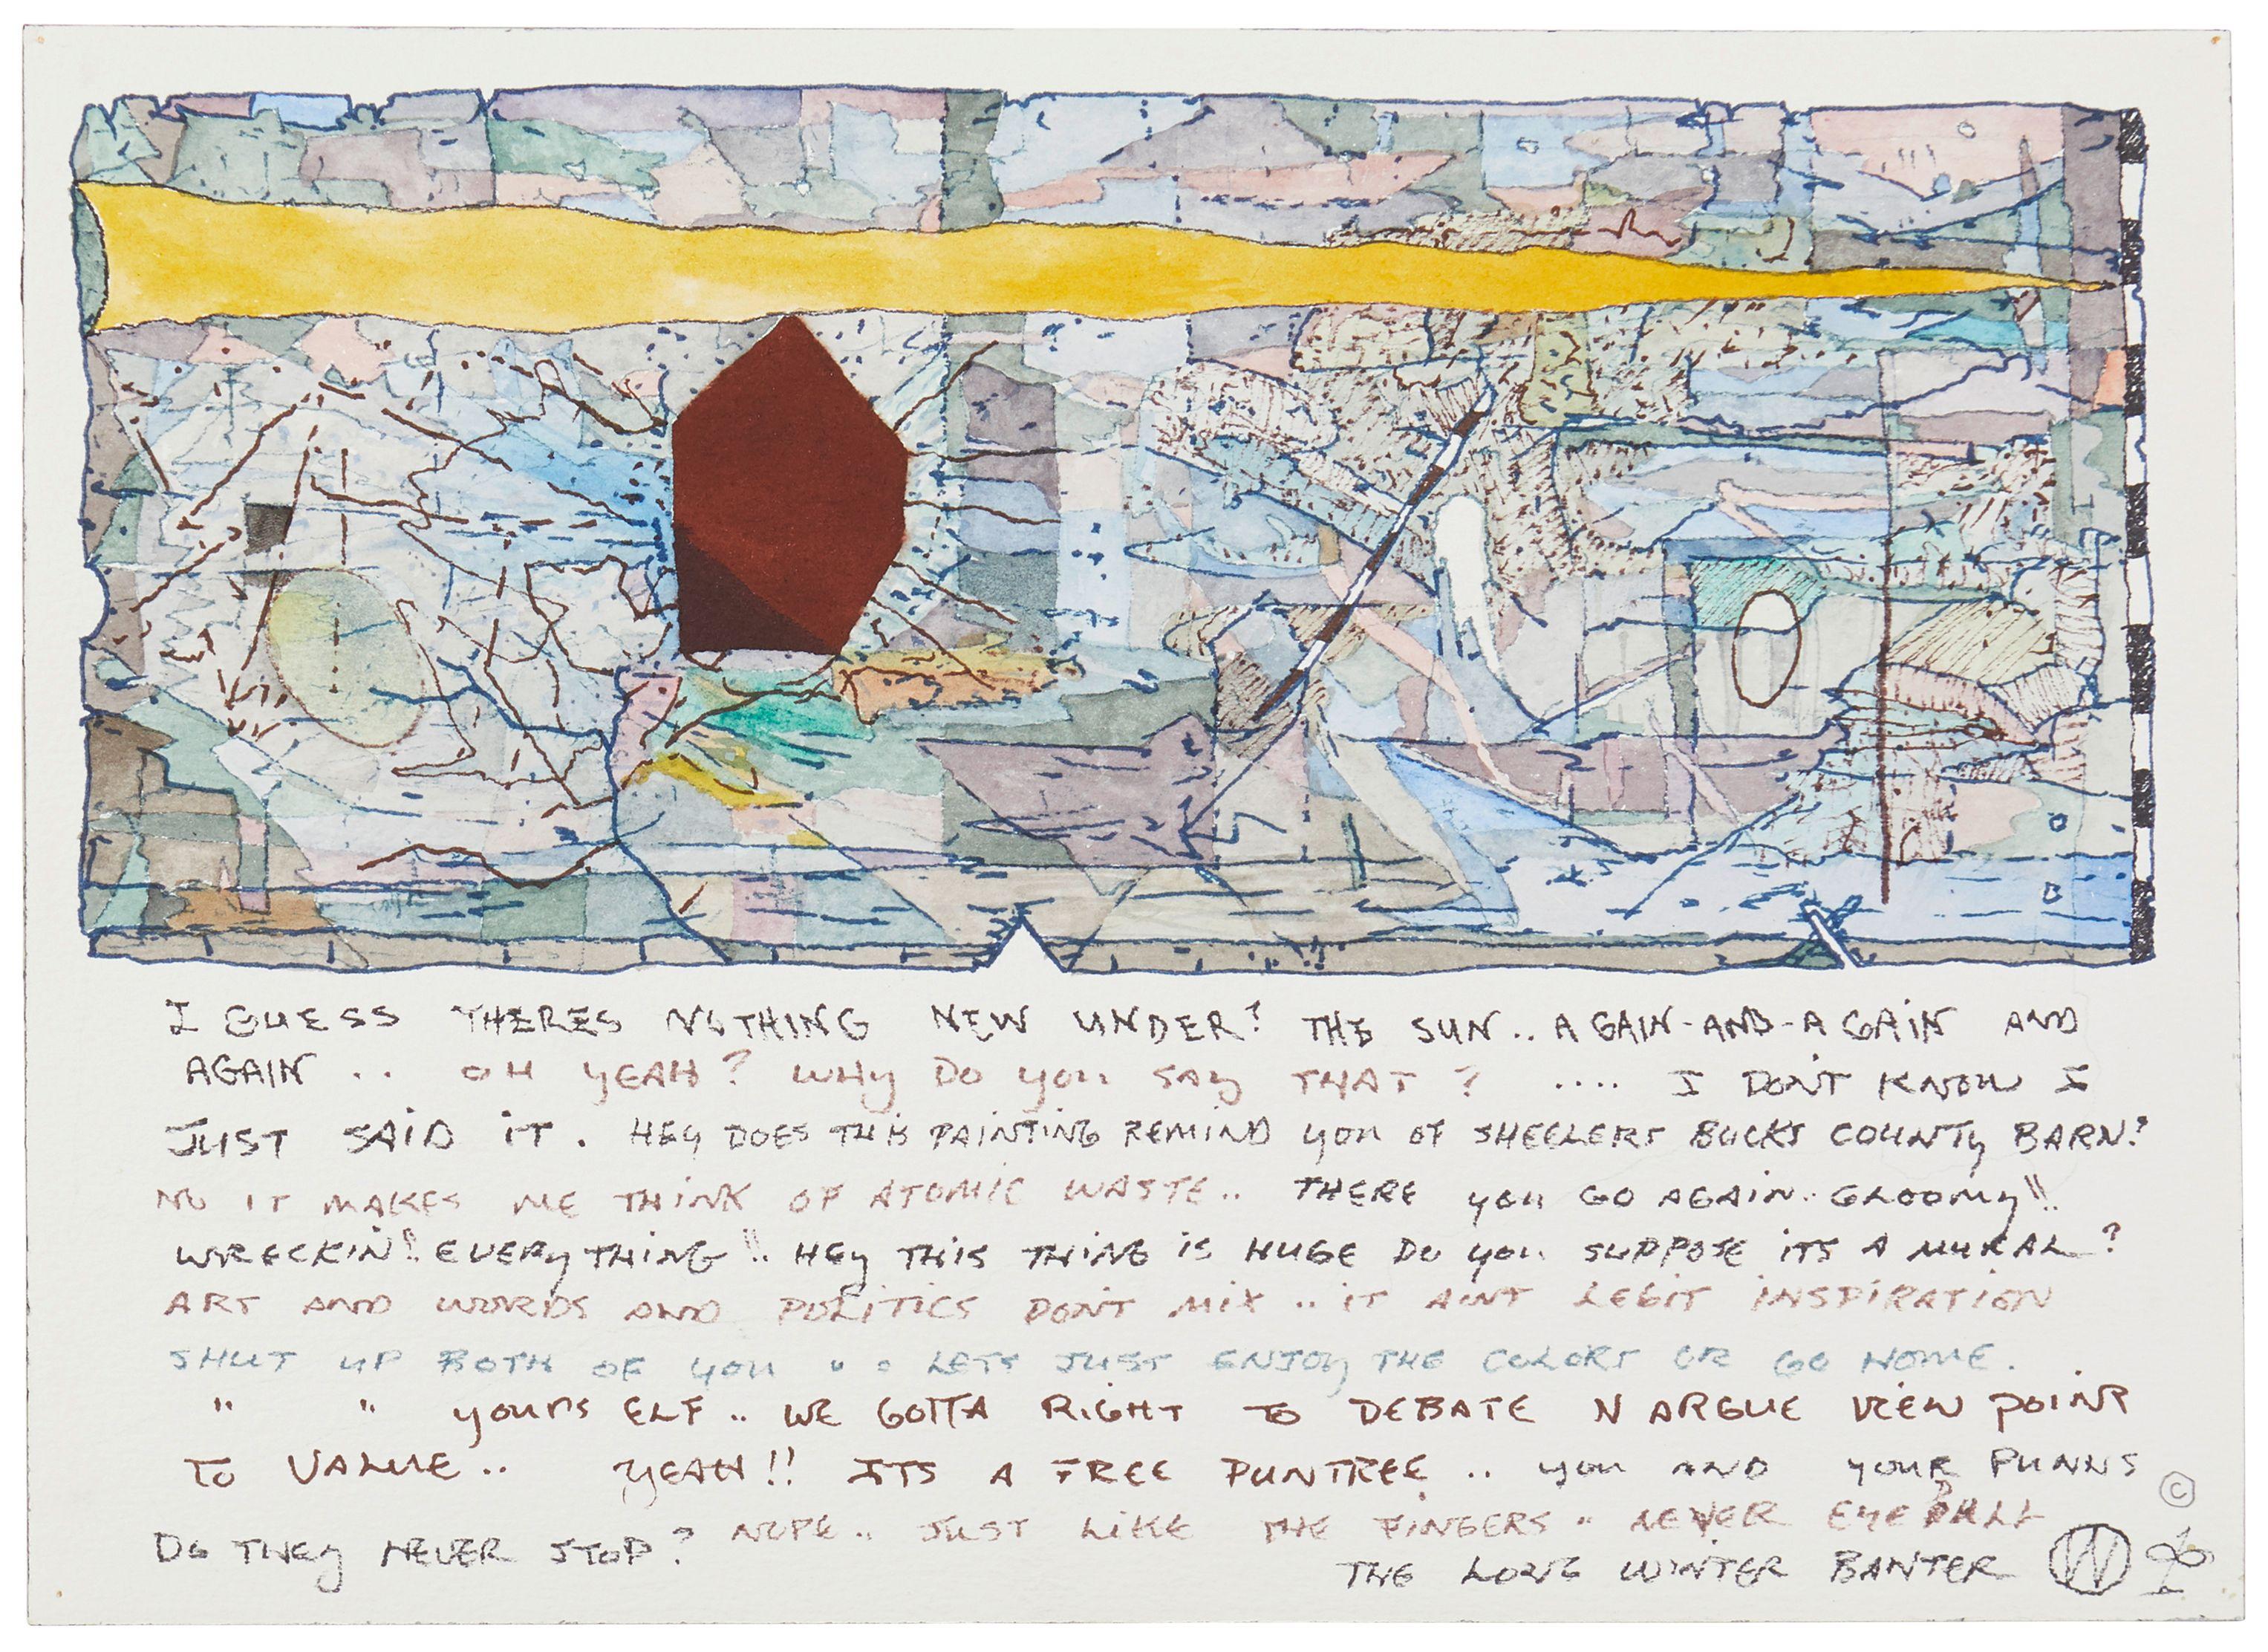 I GUESS THERES NOTHING NEW UNDER? THE SUN.. AGAIN-AND-AGAIN AND
AGAIN .. OH YEAH? WHY DO YOU SAY THAT? .... I DON'T KNOW I
JUST SAID IT. HEY DOES THIS PAINTING REMIND YOU OF SHEELERS BUCKS COUNTY BARN?
NO IT MAKES ME THINK OF ATOMIC WASTE.. THERE YOU GO AGAIN.. GLOOMY!!
WRECKIN! EVERYTHING!! HEY THIS THING IS HUGE DO YOU SUPPOSE ITS A MURAL?
ART AND WORDS AND POLITICS DON'T MIX .. IT AINT LEGIT INSPIRATION
SHUT UP BOTH OF YOU .. LETS JUST ENJOY THE COLORS OR GO HOME.
" " YOURSELF .. WE GOTTA RIGHT TO DEBATE N ARGUE VIEW POINT
TO VALUE .. YEAH!! ITS A FREE PUNTREE .. YOU AND YOUR PUNNS
DO THEY NEVER STOP? NOPE.. JUST LIKE THE FINGERS .. NEVER
THE LONG WINTER BANTER W
©